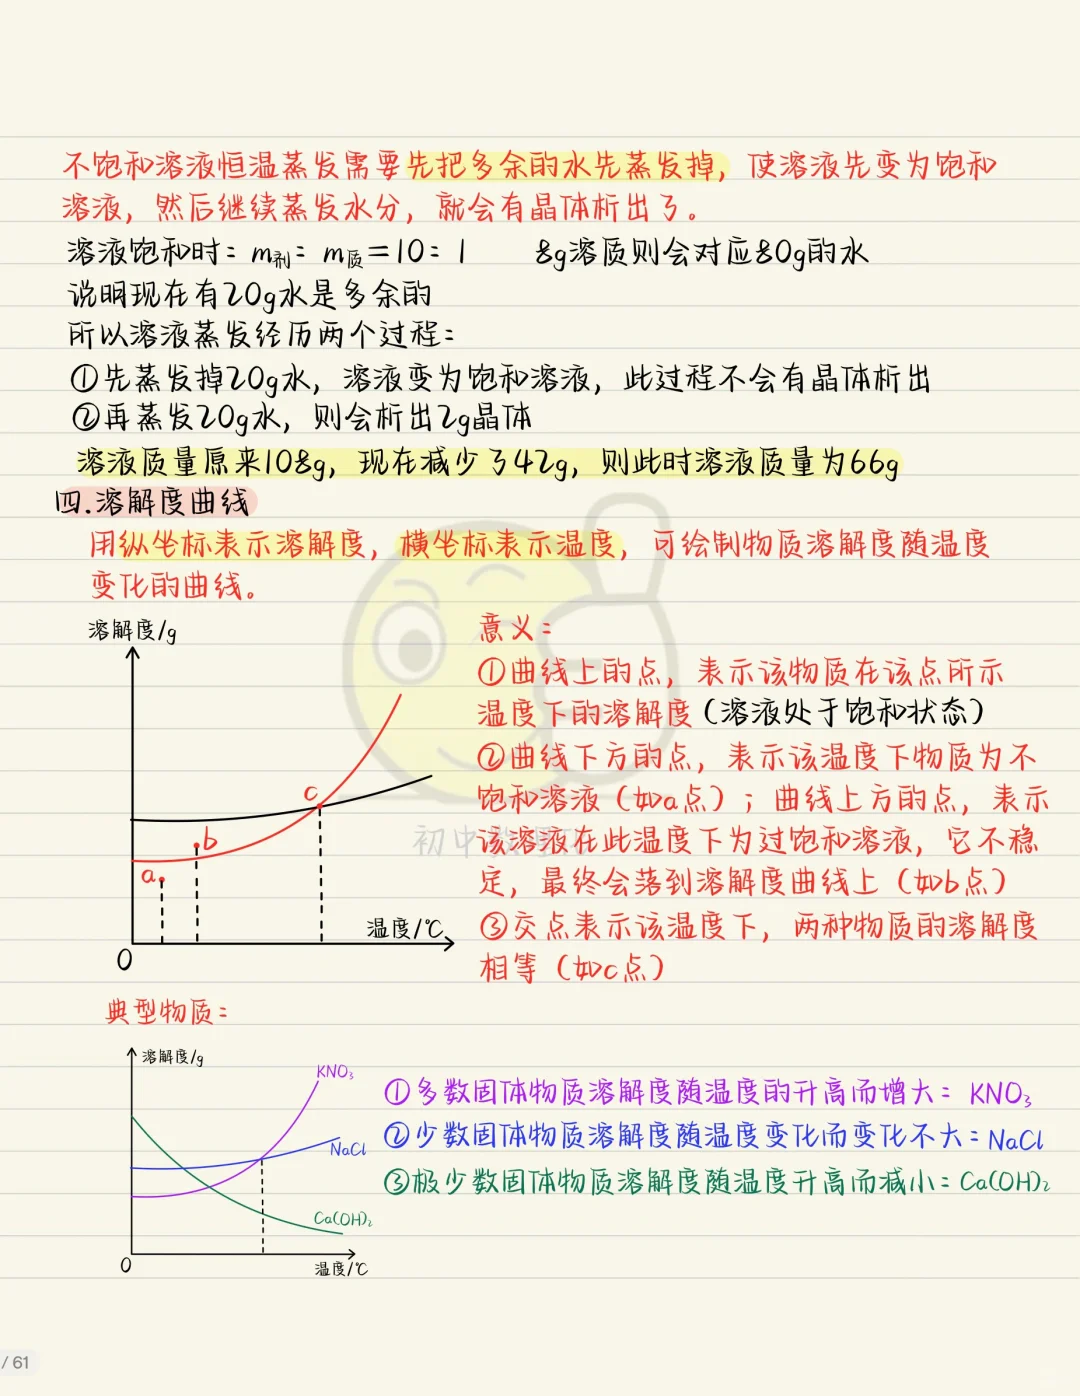 不饱和溶液恒温蒸发需要先把多余的水先蒸发掉，使溶液先变为饱和
溶液，然后继续蒸发水分，就会有晶体析出了。
溶液饱和时：m剂：m质＝10：1　8g溶质则会对应80g的水
说明现在有20g水是多余的
所以溶液蒸发经历两个过程：
①先蒸发掉20g水，溶液变为饱和溶液，此过程不会有晶体析出
②再蒸发20g水，则会析出2g晶体
溶液质量原来108g，现在减少了42g，则此时溶液质量为66g
四.溶解度曲线
用纵坐标表示溶解度，横坐标表示温度，可绘制物质溶解度随温度
变化的曲线。
溶解度/g
c
b
a
温度/℃
0
意义：
①曲线上的点，表示该物质在该点所示
温度下的溶解度（溶液处于饱和状态）
②曲线下方的点，表示该温度下物质为不
饱和溶液（如a点）；曲线上方的点，表示
该溶液在此温度下为过饱和溶液，它不稳
定，最终会落到溶解度曲线上（如b点）
③交点表示该温度下，两种物质的溶解度
相等（如c点）
初中
典型物质：
溶解度/g
KNO₃
NaCl
Ca(OH)₂
0
温度/℃
①多数固体物质溶解度随温度的升高而增大：KNO₃
②少数固体物质溶解度随温度变化而变化不大：NaCl
③极少数固体物质溶解度随温度升高而减小：Ca(OH)₂
/ 61